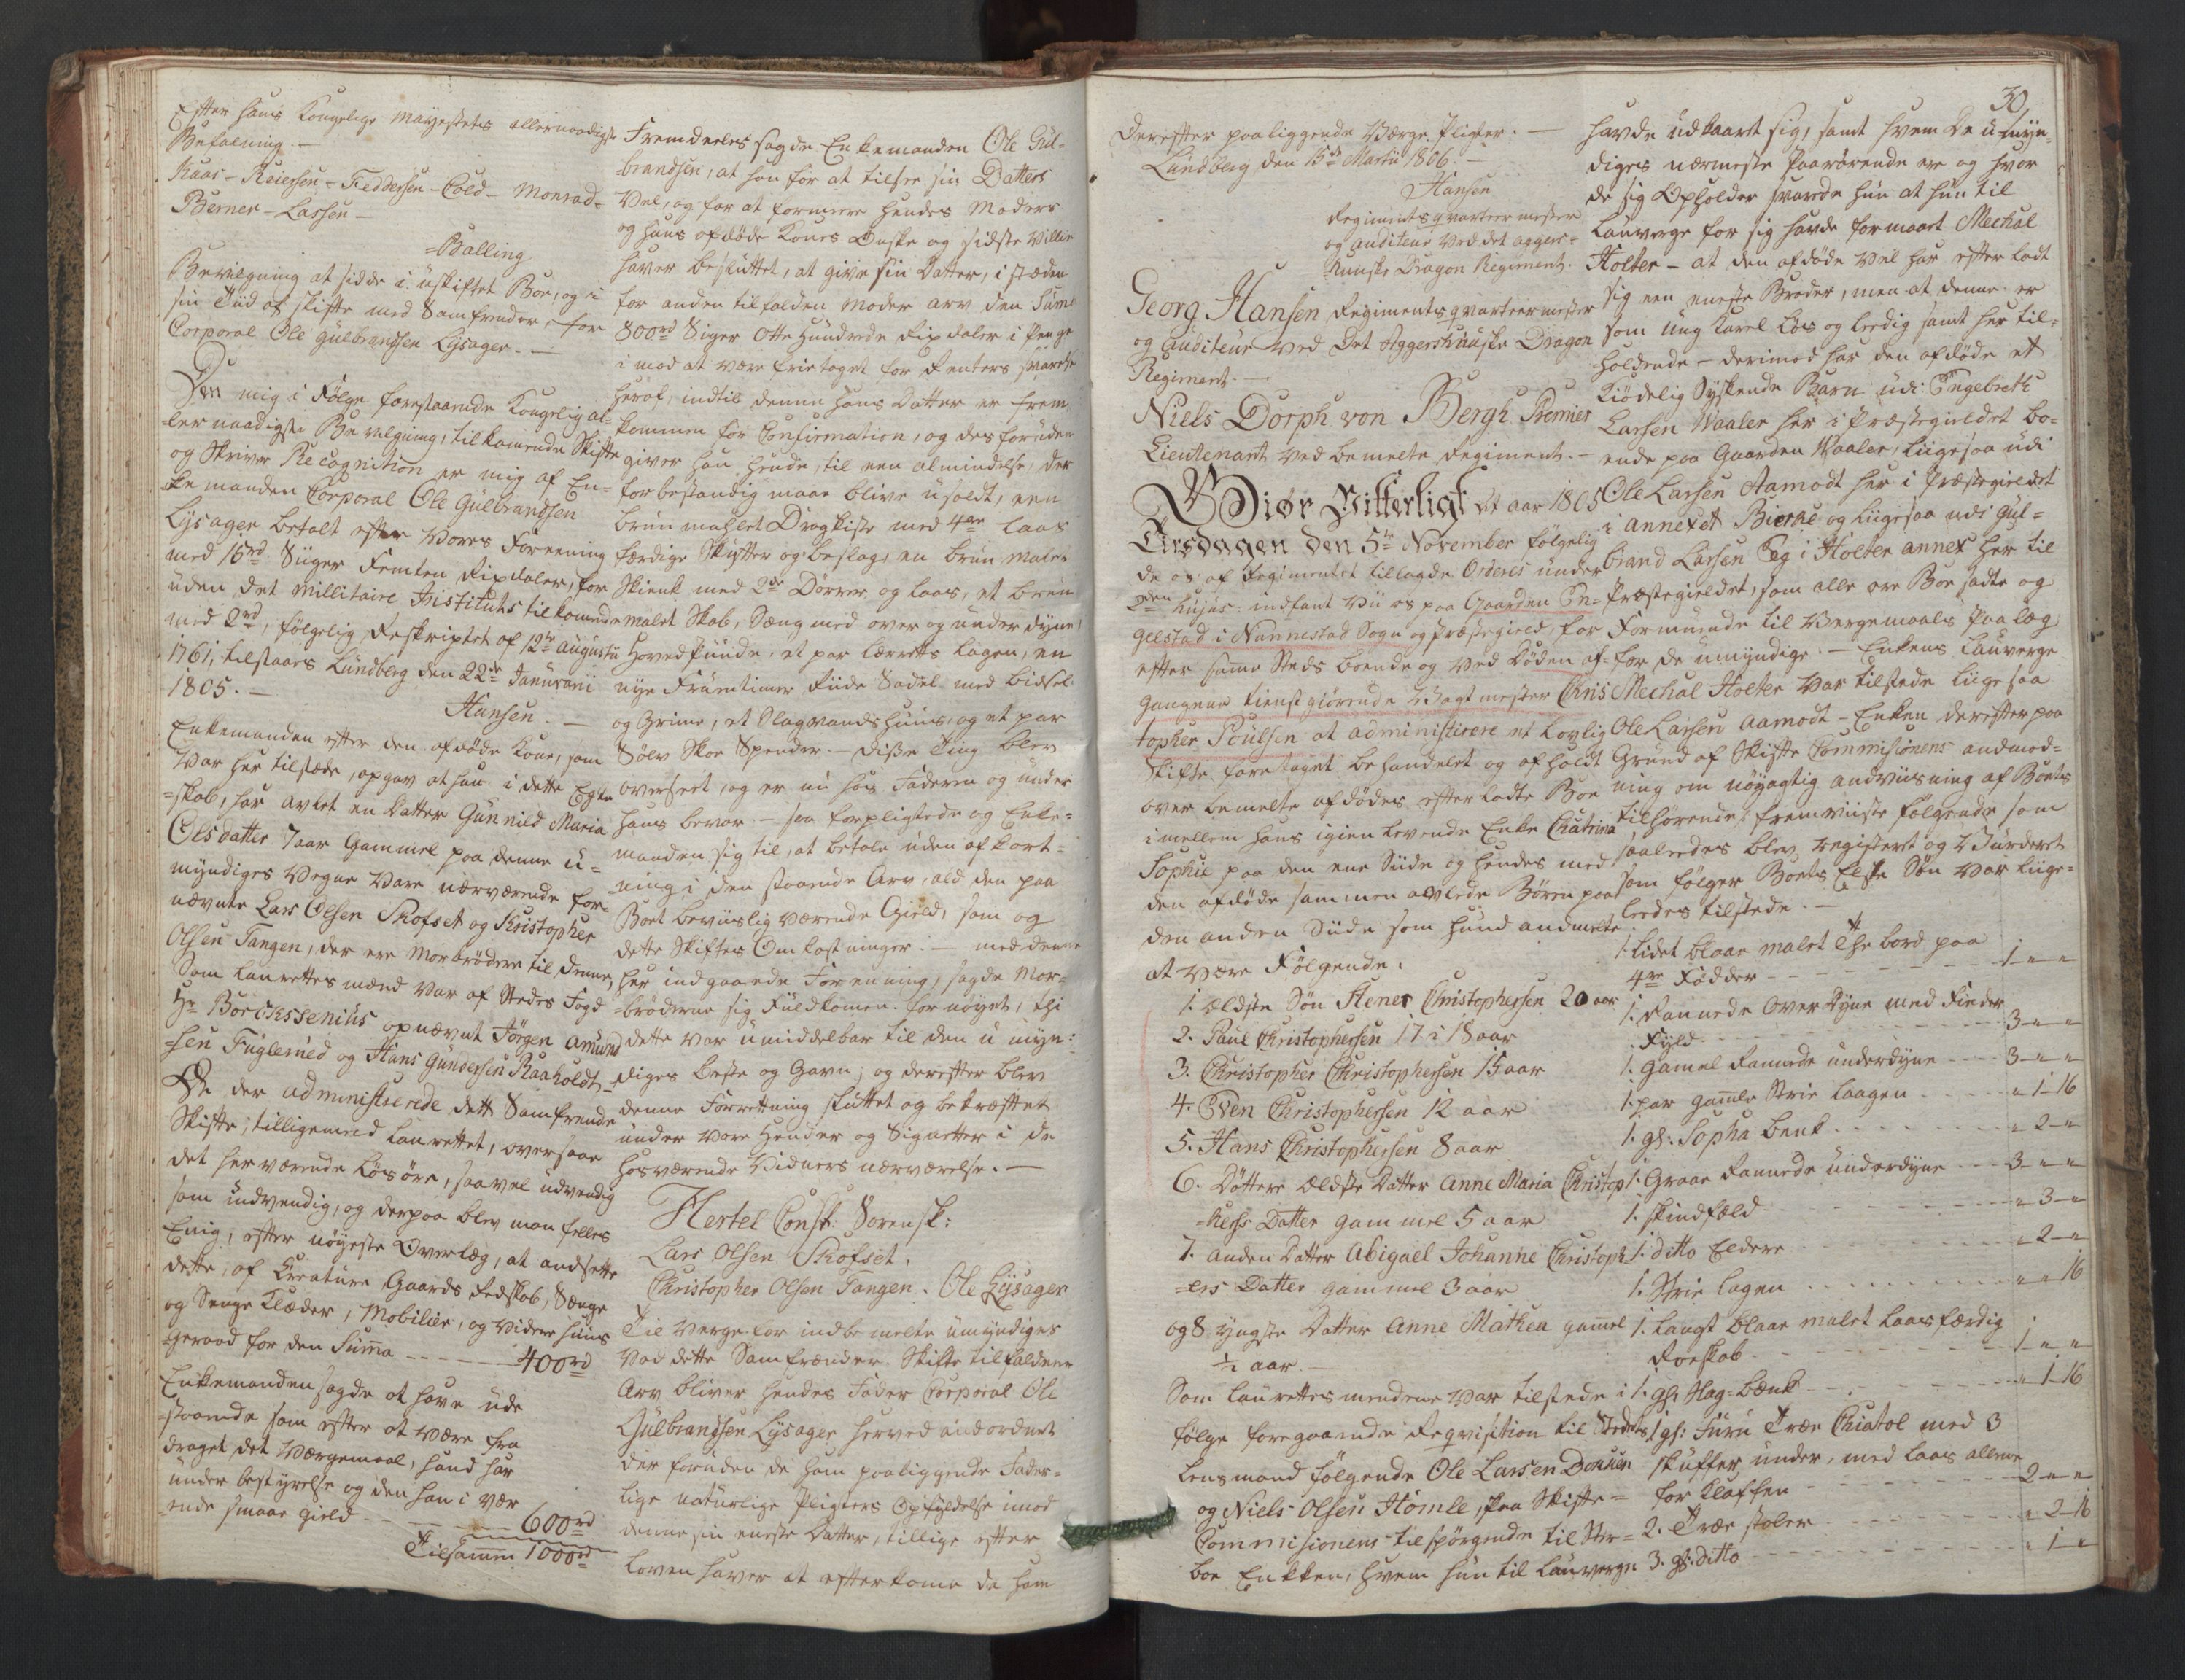 Efter hans Kongelige Mayestets allernaadigste
Befalning. —
Kaas – Reiersen – Feddersen – Cold – Monrad –
Berner – Lassen –
= Balling
Bevilgning at sidde i uskiftet Boe, og i
sin Tiid at skifte med Samfrender, for
Corporal Ole Gulbrandsen Lysager. —
Den mig i Følge forestaaende Kongelig al-
lernaadigste Bevilgning, tilkomende Skifte
og Skriver Recognition er mig af En-
kemanden Corporal Ole Gulbrandsen
Lysager betalt efter Vores Foreening
med 15rd Siiger Femten Rixdaler, for
uden det Millitaire Instituts tilkomende
med 2rd, følgelig Reskriptet af 12te Augustii
1761, tilstaaes Lundberg den 22de Januarii
1805. —
Hansen. —
Enkemanden efter den afdøde Kone, som
Var her tilstæde, opgav at han i dette Egte
=skab, har avlet en Datter Gunnild Maria
Olsdatter 7 aar Gammel paa denne u-
myndiges Vegne Vare nærværende for-
nævnte Lars Olsen Skofset og Kristopher
Olsen Tangen, der ere Morbrødre til denne,
Som Laurettes mænd Var af Stedes Fogd
Hr Borchssenius opnævnt Jørgen Amund
=sen Fuglerud og Hans Gundersen Raaholdt –
De der administrerede dett Samfrende
Skifte, tilligemed Laurettet, oversaae
det herværende Løsøre, saavel udvendig
som indvendig, og derpaa blev man felles
Enig, efter nøyeste Overlæg, at andsette
dette, af Creature Gaards Redskab, Sænge
og Senge Klæder, Mobilier, og videre huus
=geraad for den Suma – – – – – 400rd
Enkemanden sagde at have ude
staaende som efter at være fra
draget det Værgemaal, hand har
under bestyrelse og den han i vær
ende smaae gield – – – – – 600rd
Tilsammen 1000rd
Fremdeeles sagde Enkemanden Ole Gul-
=brandsen, at han for at tilsee sin Datters
Vel, og for at formere hendes Moders
og hans afdøde Kones Ønske og sidste Villie
haver besluttet, at give sin Datter, i stæden
for anden tilfalden Moder arv den Suma
800rd Siger Otte Hundrede Rixdaler i Penge
imod at være frietaget for Renters svarelse
heraf, indtil denne hans Datter er frem
kommen for Confirmation, og des foruden
giver han hende, til een almindelse, der
forbestandig maae blive usoldt, een
bruun mahlet Dragkiste med 4re Laas
færdige Skuffer og beslag, en bruun malet
Skienk med 2de Dørrer og Laas, et bruun
malet Skab, Sæng med over og under dyne
Hovedpude, et par Lærrets Lagen, en
nye Fruentimer Riide Sadel med Bidsel
og Grime, et Slagvands huus, og et par
Sølv Skoe Spender. — Disse Ting blev
overseet, og er nu hos Faderen og under
hans bevar. — saa forpligtede og Enke-
manden sig til, at betale uden afkort-
ning i den staaende Arv, ald den paa
Boet beviislig værende Gield, som og
dette Skiftes Omkostninger. — med denne
her indgaaede Foreening, sagde Mor-
=brødrene sig fuldkomen fornøyet, thi
dette var umiddelbar til den u myn-
diges beste og Gavn; og derefter blev
denne Forretning sluttet og bekræftet
under vore Hænder og Signetter i de
hosværende Vidners nærværelse. —
Hertel Const: Sorensk:
Lars Olsen Skofset.
Christopher Olsen Tangen. Ole Lysager
Til Verge for indbemelte umyndiges
Ved dette Samfrænder Skifte tilfaldene
Arv bliver hendes Fader Corporal Ole
Gulbrandsen Lysager herved andordnet
der foruden de ham paaliggende Fader-
lige naturlige Pligters Opfyldelse imod
denne sin eneste Datter, tillige efter
Loven haver at efterkome de ham
derefter paaliggende Værge Pligter. —
Lundberg den 15de Martii 1806. —
Hansen
Regimentsqvarteermester
og Auditeur Ved det Aggers-
huuske Dragon Regiment.
Georg Hansen Regimentsqvarteermester
og Auditeur Ved Det Aggershuuske Dragon
Regiment. —
Niels Dorph von Bergh Premier
Lieutenant ved bemelte Regiment. —
Giør Vitterligt At aar 1805
Tirsdagen den 5te November følgelig
de os af Regimentet tillagde Orders under
2den hujus: indfant Vii os paa Gaarden En-
gelstad i Nannestad Sogn og Præstegield, for
efter same Steds boende og Ved Døden af-
gangne tienstgiørende Vagtmester Chris
topher Poulsen at administrere et Lovlig
Skifte foretaget behandelet og afholdt
over bemelte afdødes efterladte Boe
imellem hans igien levende Enke Chatrina
Sophie paa den ene Siide og hendes med
den afdøde sammen avlede Børen paa
den anden Siide som hund andmelte
at være Følgende.
1. Ældste Søn Stener Christophersen 20 aar
2. Paul Christophersen 17 i 18 aar
3. Christopher Christophersen 15 aar
4. Even Christophersen 12 aar
5. Hans Christophersen 8 aar
6. Døttere Ældste Datter Anne Maria Christop
=hers Datter gammel 5 aar
7. anden Datter Abigael Johanne Christoph
=ers Datter gammel 3 aar
og 8 yngste Datter Anne Mathea gamel
½ aar. —
Som Laurettesmendene Var tilstede i
følge foregaaende Reqvisition til Stedets
Lensmand følgende Ole Larsen Donken
og Niels Olsen Homle, paa Skifte-
Commisionens tilspørgende til Ster-
boe Enkken, hvem hun til Laugverge
30
havde udkaaret sig, samt hvem de umyn-
diges nærmeste Paarørende ere og hvor
de sig Opholder svarede hun at hun til
Lauverge for sig havde formaaet Mechal
Holter – at den afdøde Vel har efterladt
sig een eneste Broder, men at denne er
som ung Karel løs og ledig samt her til-
holdende – derimod har den afdøde et
Kiødelig Syskende Barn udi Engebreth
Larsen Waaler her i Præstegieldet bo-
ende paa Gaarden Waaler, ligesaa udi
Ole Larsen Aamodt her i Præstegieldet
i Annexet Bierke og ligesaa udi Gul-
brand Larsen Eeg i Holter annex her til
Præstegieldet, som alle ere Boesadte og
Formuende til Vergemaals Paalæg
for de umyndige. — Enkens Lauverge
Mechal Holter Var tilstede ligesaa
Ole Larsen Aamodt – Enken derefter paa
Grund af Skifte Commisionens andmod-
ning om nøyagtig andviisning af Boets
tilhørende, fremviiste følgende som
saaledes blev registeret og Vurderet
som følger Boets Elste Søn Var liige-
leedes tilstede. —
1. Lidet blaae malet The bord paa
4re Fødder – – – – – 1 – „ – „
1. Rannede Over dyne med Fieder
Fyld – – – – – 3 – „ – „
1. gamel Rannede underdyne – – – 3 – „ – „
1. par gamle Strie Laagen – – – „ – 1 – 16
1. gl: Sopha benk – – – – „ – 2 – „
1. Graae Rannede underdyne – – 3 – „ – „
1. Skindfæld – – – – – „ – 3 – „
1. ditto Eldere – – – – „ – 2 – „
1. Strie Lagen – – – – – „ – „ – 16
1. Langt blaae malet Laasfærdig
Roeskab – – – – – 1 – „ – „
1. gl: Slag-bænk – – – – „ – 1 – 16
1 gl: Furu Træe Chiatol med 3
skuffer under, med Laas allene
for Klaffen – – – – 2 – „ – „
2. Træe stoler – – – – „ – 2 – 16
3. gl: ditto – – – – – „ – 1 – „